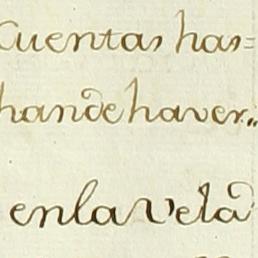 Cuentas has=
han de haver„
en la vela